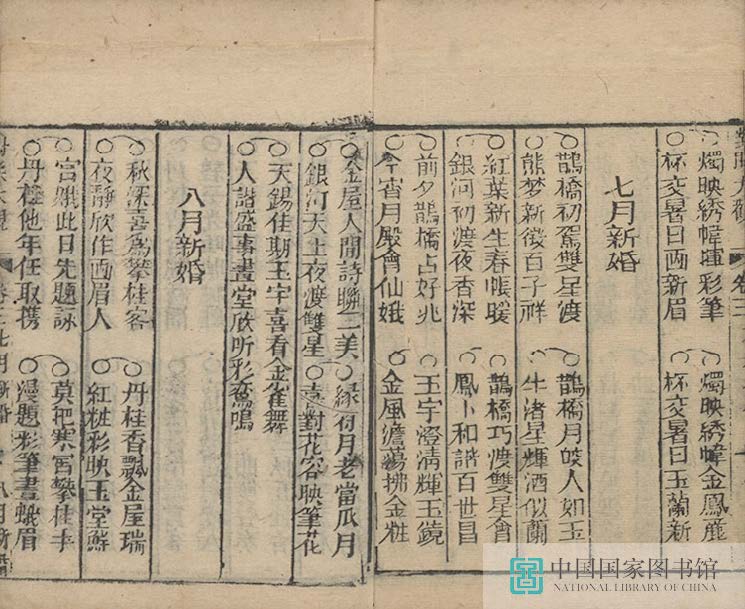 燭映綉幃暉彩筆 燭映綉幃金鳳麗
杯交暑日画新眉 杯交暑日玉蘭新
七月新婚
鵲橋初駕雙星渡 鵲橋月皎人如玉
熊梦新徵百子祥 牛渚星輝酒似蘭
紅葉新生春帳暖 鵲橋巧渡雙星會
銀河初渡夜香深 鳳卜和諧百世昌
前夕鵲橋占好兆 玉宇澄清輝玉鏡
今宵月殿會仙娥 金風澹蕩拂金粧
金屋人間詩聯二美 緣待月老當瓜月
銀河天上夜渡雙星 對花容映筆花
天錫佳期玉宇喜看金雀舞
人諧盛事畫堂欣听彩鸞鳴
八月新婚
秋深喜爲攀桂客 丹桂香飄金屋瑞
夜靜欣作画眉人 紅粧彩映玉堂鮮
宮娥此日先題詠 莫把寒宮攀桂手
丹桂他年任取携 漫題彩筆畫蛾眉
中国国家图书馆
NATIONAL LIBRARY OF CHINA